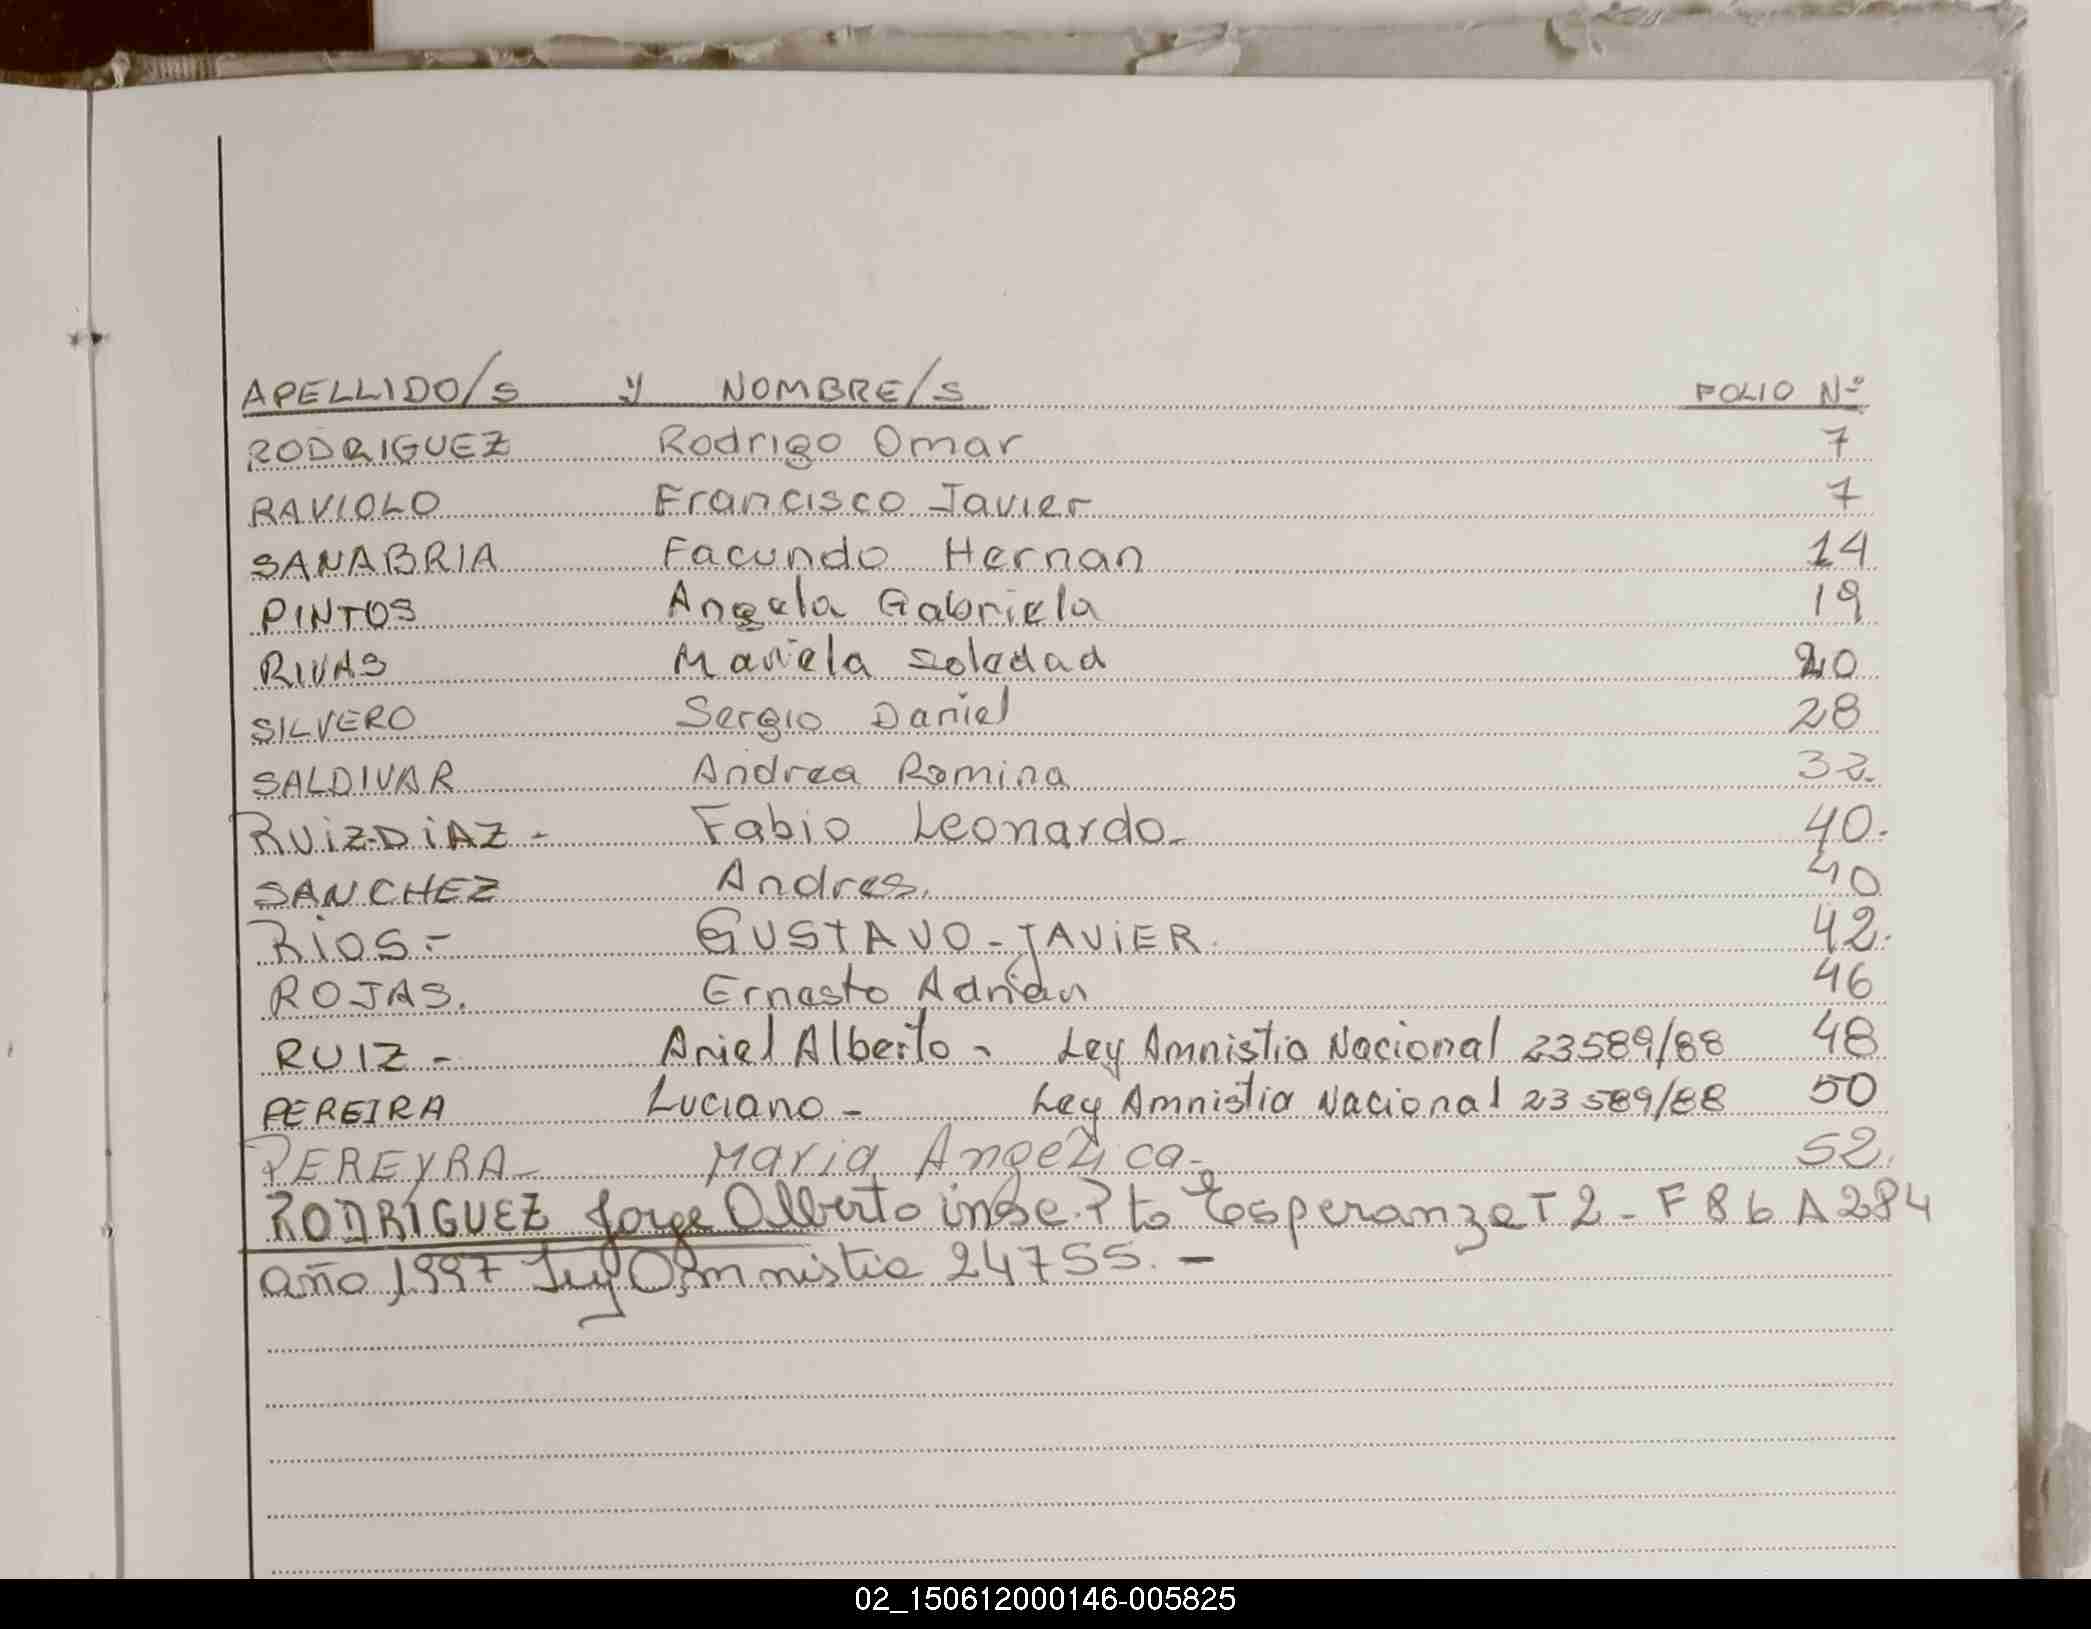 APELLIDO/S y NOMBRE/S FOLIO Nº
RODRIGUEZ Rodrigo Omar 7
RAVIOLO Francisco Javier 7
SANABRIA Facundo Hernan 14
PINTOS Angela Gabriela 19
RIVAS Mariela Soledad 20
SILVERO Sergio Daniel 28
SALDIVAR Andrea Romina 32.
RUiZ-DiAZ - Fabio Leonardo- 40.
SANCHEZ Andres. 40
RiOS.- GUSTAVO-JAViER. 42.
ROJAS. Ernesto Adrián 46
RUIZ - Ariel Alberto - Ley Amnistia Nacional 23589/88 48
PEREIRA Luciano - Ley Amnistia Nacional 23589/88 50
PEREYRA- Maria Angelica- 52.
RODRÍGUEZ Jorge Alberto insc. Pto Esperanza T 2 - F 86 A 284
año 1997 Ley Amnistia 24755. -
02_150612000146-005825